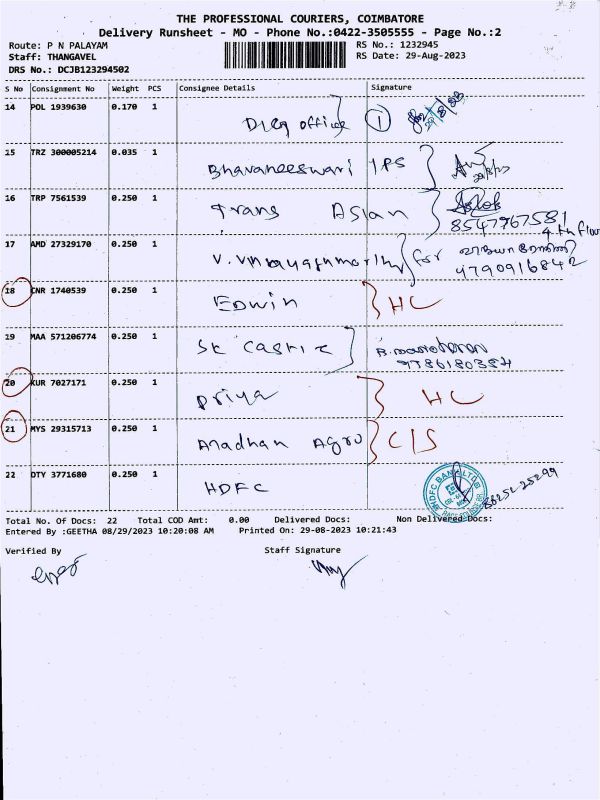 THE PROFESSIONAL COURIERS, COIMBATORE
Delivery Runsheet - MO - Phone No.:0422-3505555 - Page No.:2
Route: P N PALAYAM
RS No.: 1232945
Staff: THANGAVEL
RS Date: 29-Aug-2023
DRS No.: DCJB123294502
S No Consignment No Weight PCS Consignee Details Signature
14 POL 1939630 0.170 1 office 1
15 TRZ 300005214 0.035 1 Bhavaneeswari IPS
16 TRP 7561539 0.250 1 Trans Asian
8547767581
17 AMD 27329170 0.250 1 for 4th floor
4790916842
18 CNR 1740539 0.250 1 EDWIN HC
19 MAA 571206774 0.250 1 SK
20 KUR 7027171 0.250 1 Priya HC
21 MYS 29315713 0.250 1 Aradhan Agro C/S
22 DTY 3771680 0.250 1 HDFC HDFC BANK LTD
Total No. Of Docs: 22 Total COD Amt: 0.00 Delivered Docs: Non Delivered Docs:
Entered By :GEETHA 08/29/2023 10:20:08 AM Printed On: 29-08-2023 10:21:43
Verified By Staff Signature